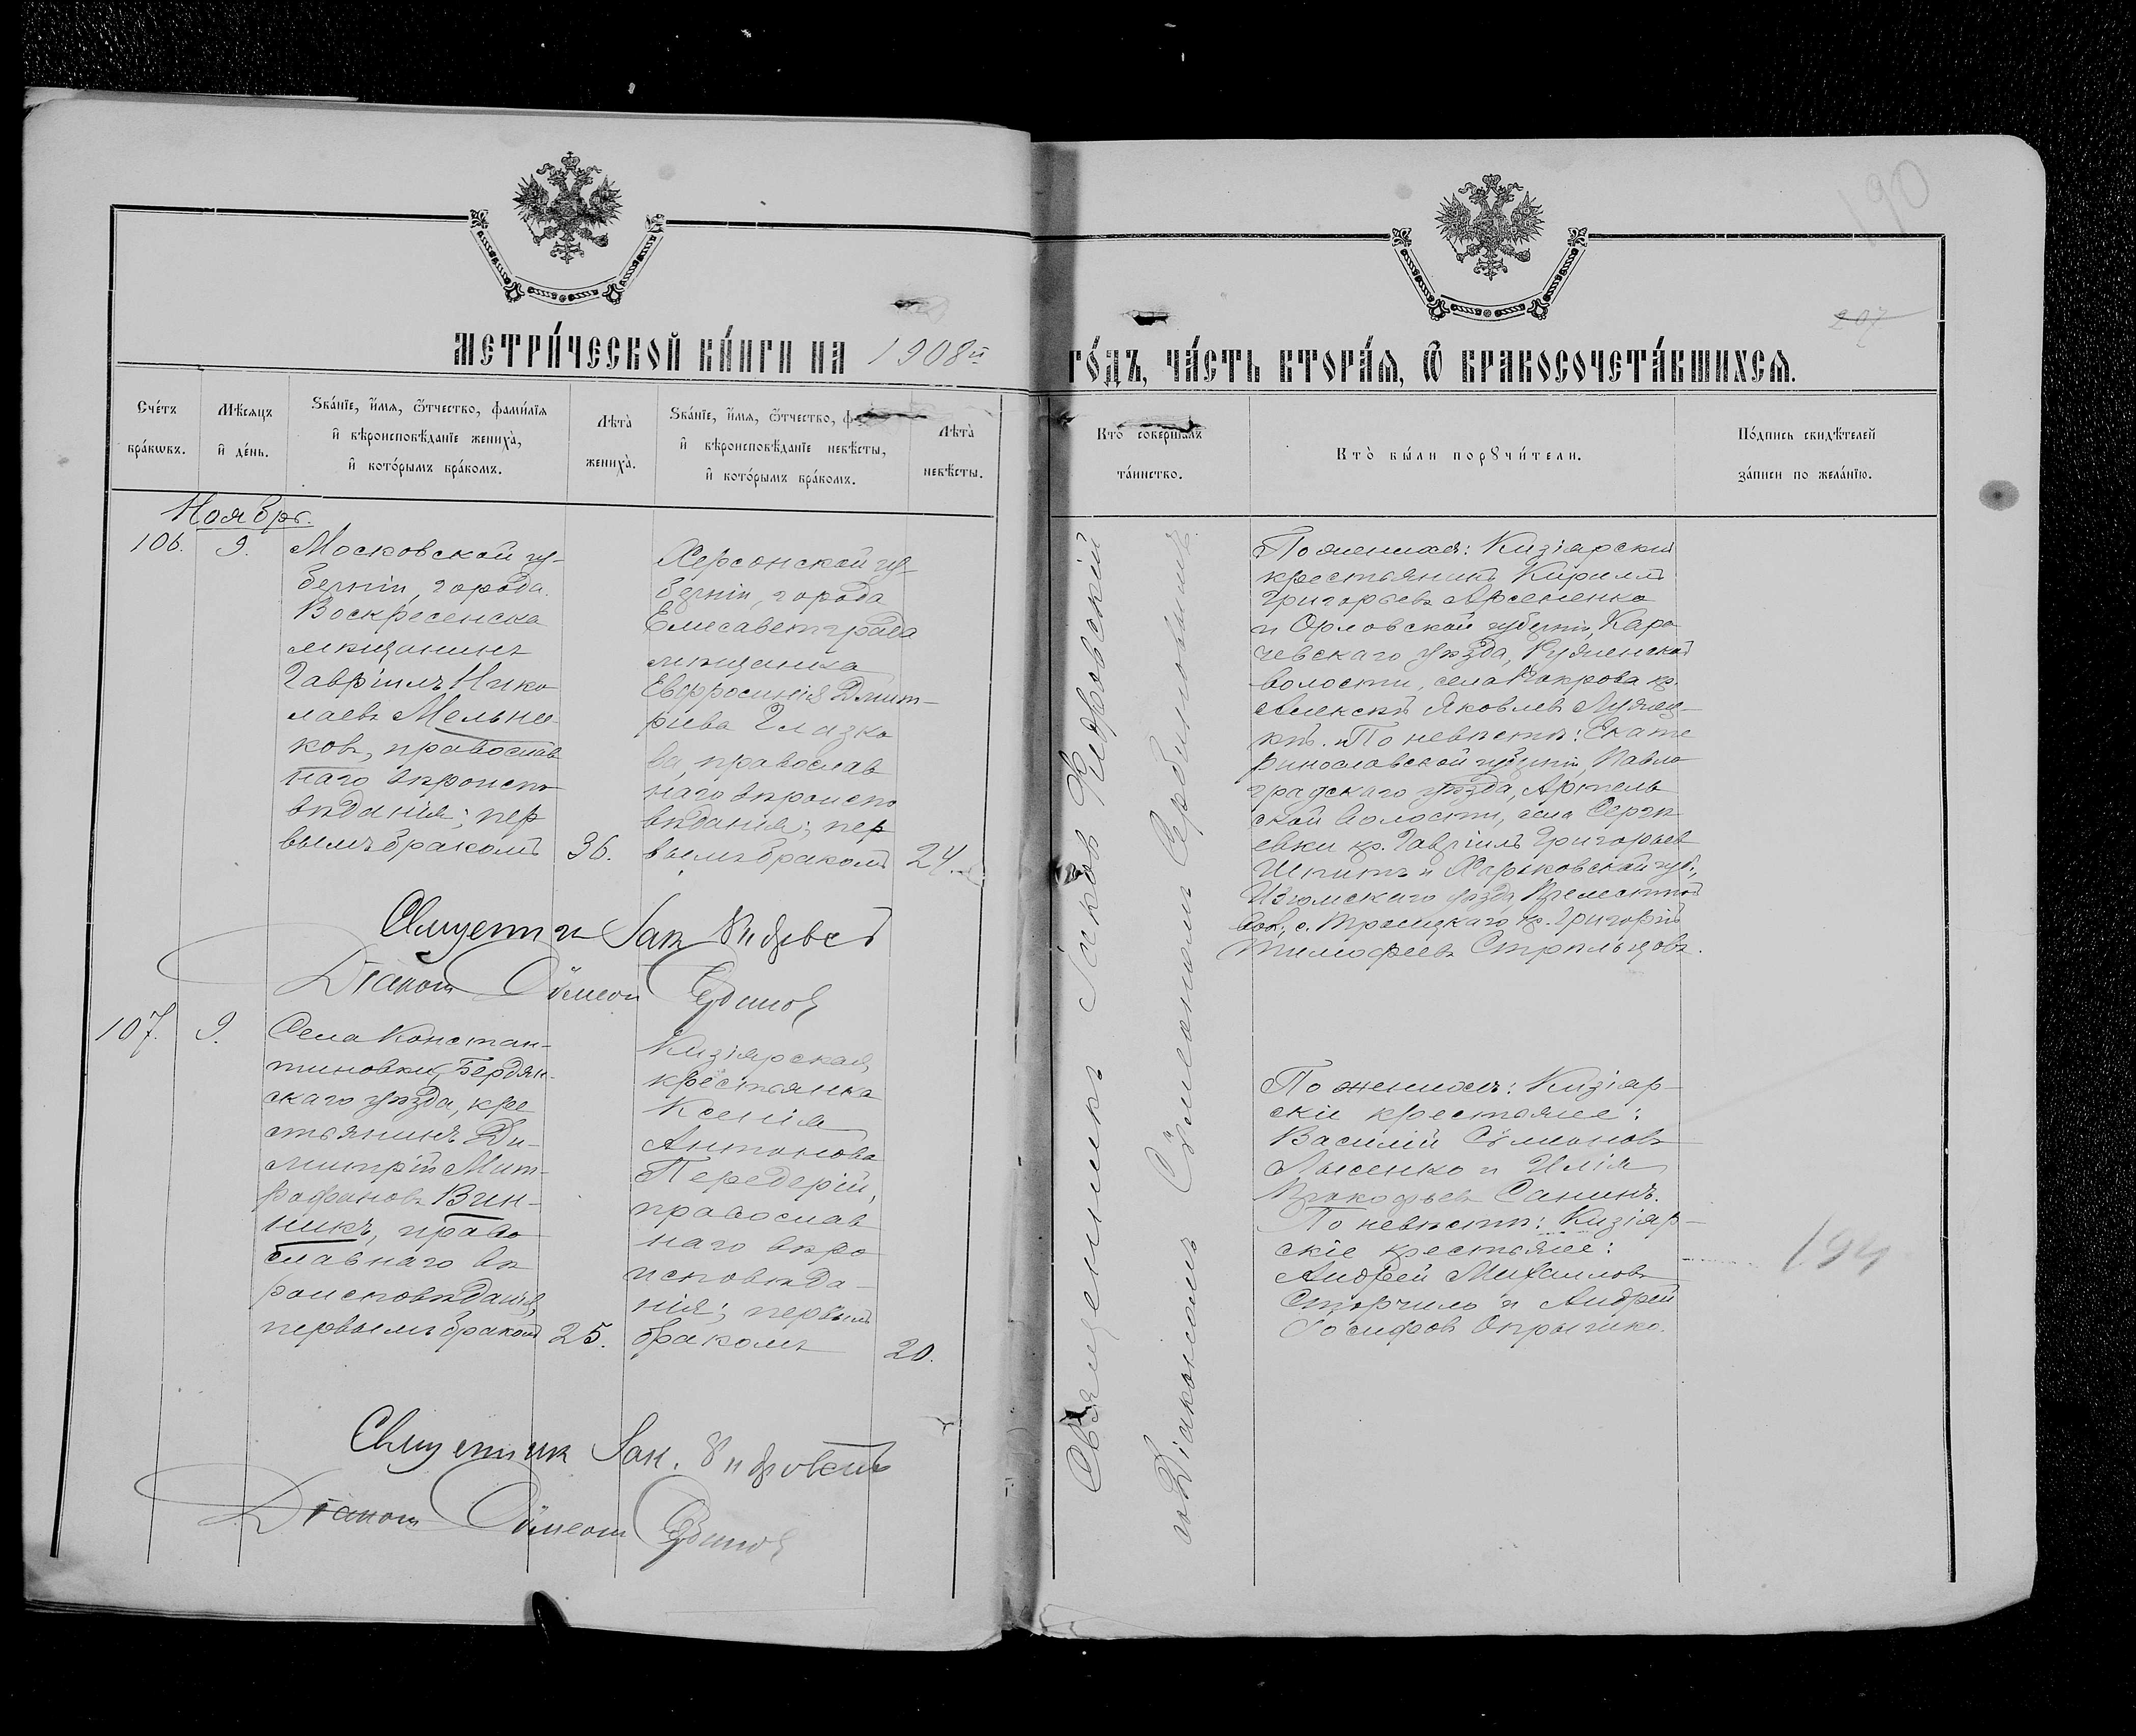 190
207
МЕТРИ́ЧЕСКОЙ КНИ́ГИ НА 1908й
ГО́ДЪ, ЧА́СТЬ ВТОРА́Я, Ѿ БРАКОСОЧЕТА́ВШИХСЯ.
Сче́тъ бра́кѡвъ.
Мѣ́сяцъ и҆ де́нь.
Ѕва́нїе, и҆́мя, ѻ҆́тчество, фами́лїя
и҆ вѣроисповѣ́данїе жениха̀,
и҆ кото́рымъ бра́комъ.
Лѣ́та̀ жениха̀.
Ѕва́нїе, и҆́мя, ѻ҆́тчество,
и҆ вѣроисповѣ́данїе невѣ́сты,
и҆ кото́рымъ бра́комъ.
Лѣ́та̀ невѣ́сты.
Кто̀ соверша́лъ
та́инство.
Кто̀ бы́ли порꙋчи́тели.
По́дпись свидѣ́телей
за́писи по жела́нїю.
Ноябрь.
106.
9.
Московской гу-
берніи, города
Воскресенска
мѣщанинъ
Гавріилъ Нико
лаевъ Мельни-
ковъ, православ
наго вѣроиспо
вѣданія; пер
вымъ бракомъ
36.
Херсонской гу-
берніи, города
Елисаветграда
мѣщанка
Евфросинія Димит-
ріева Глазко
ва, православ
наго вѣроиспо
вѣданія; пер
вымъ бракомъ
24.
Священникъ Іаковъ Ѳидровскій
съ Діакономъ Сѵмеономъ Сербиновымъ
По женихѣ: Кизіярскій
крестьянинъ Кириллъ
Григорьевъ Арсененко
и Орловской губерніи, Кара
чевскаго уѣзда,
волости, села Покрова кр.
Алексѣй Яковлевъ
По невѣстѣ: Екате
ринославской губерніи, Павло
градскаго уѣзда,
ской волости, села Сергѣ
евки кр. Гавріилъ Григорьевъ
и Харьковской губ.,
Изюмскаго уѣзда
вол., с. Троицкаго кр. Григорій
Тимофеевъ Стрѣльцовъ.
Священникъ Іак. Ѳидровскій
Діаконъ Сѵмеон Сербинов
107.
9.
Села Констан-
тиновки, Бердян-
скаго уѣзда, кре
стьянинъ Ди-
митрій Мит-
рофановъ Вин-
никъ, право
славнаго вѣ
роисповѣданія;
первымъ бракомъ
25.
Кизіярская
крестьянка
Ксенія
Антонова
Передерій,
православ
наго вѣро
исповѣда-
нія; первымъ
бракомъ
20.
По женихѣ: Кизіяр-
скіе крестьяне:
Василій Сѵмеоновъ
Лысенко и Илія
Прокофьевъ Санинъ.
По невѣстѣ: Кизіяр-
скіе крестьяне:
Андрей Михаиловъ
Сторчило и Андрей
Іосифовъ Опрышко.
194
Священник Іак. Ѳидровскій
Діаконъ Сѵмеон Сербинов